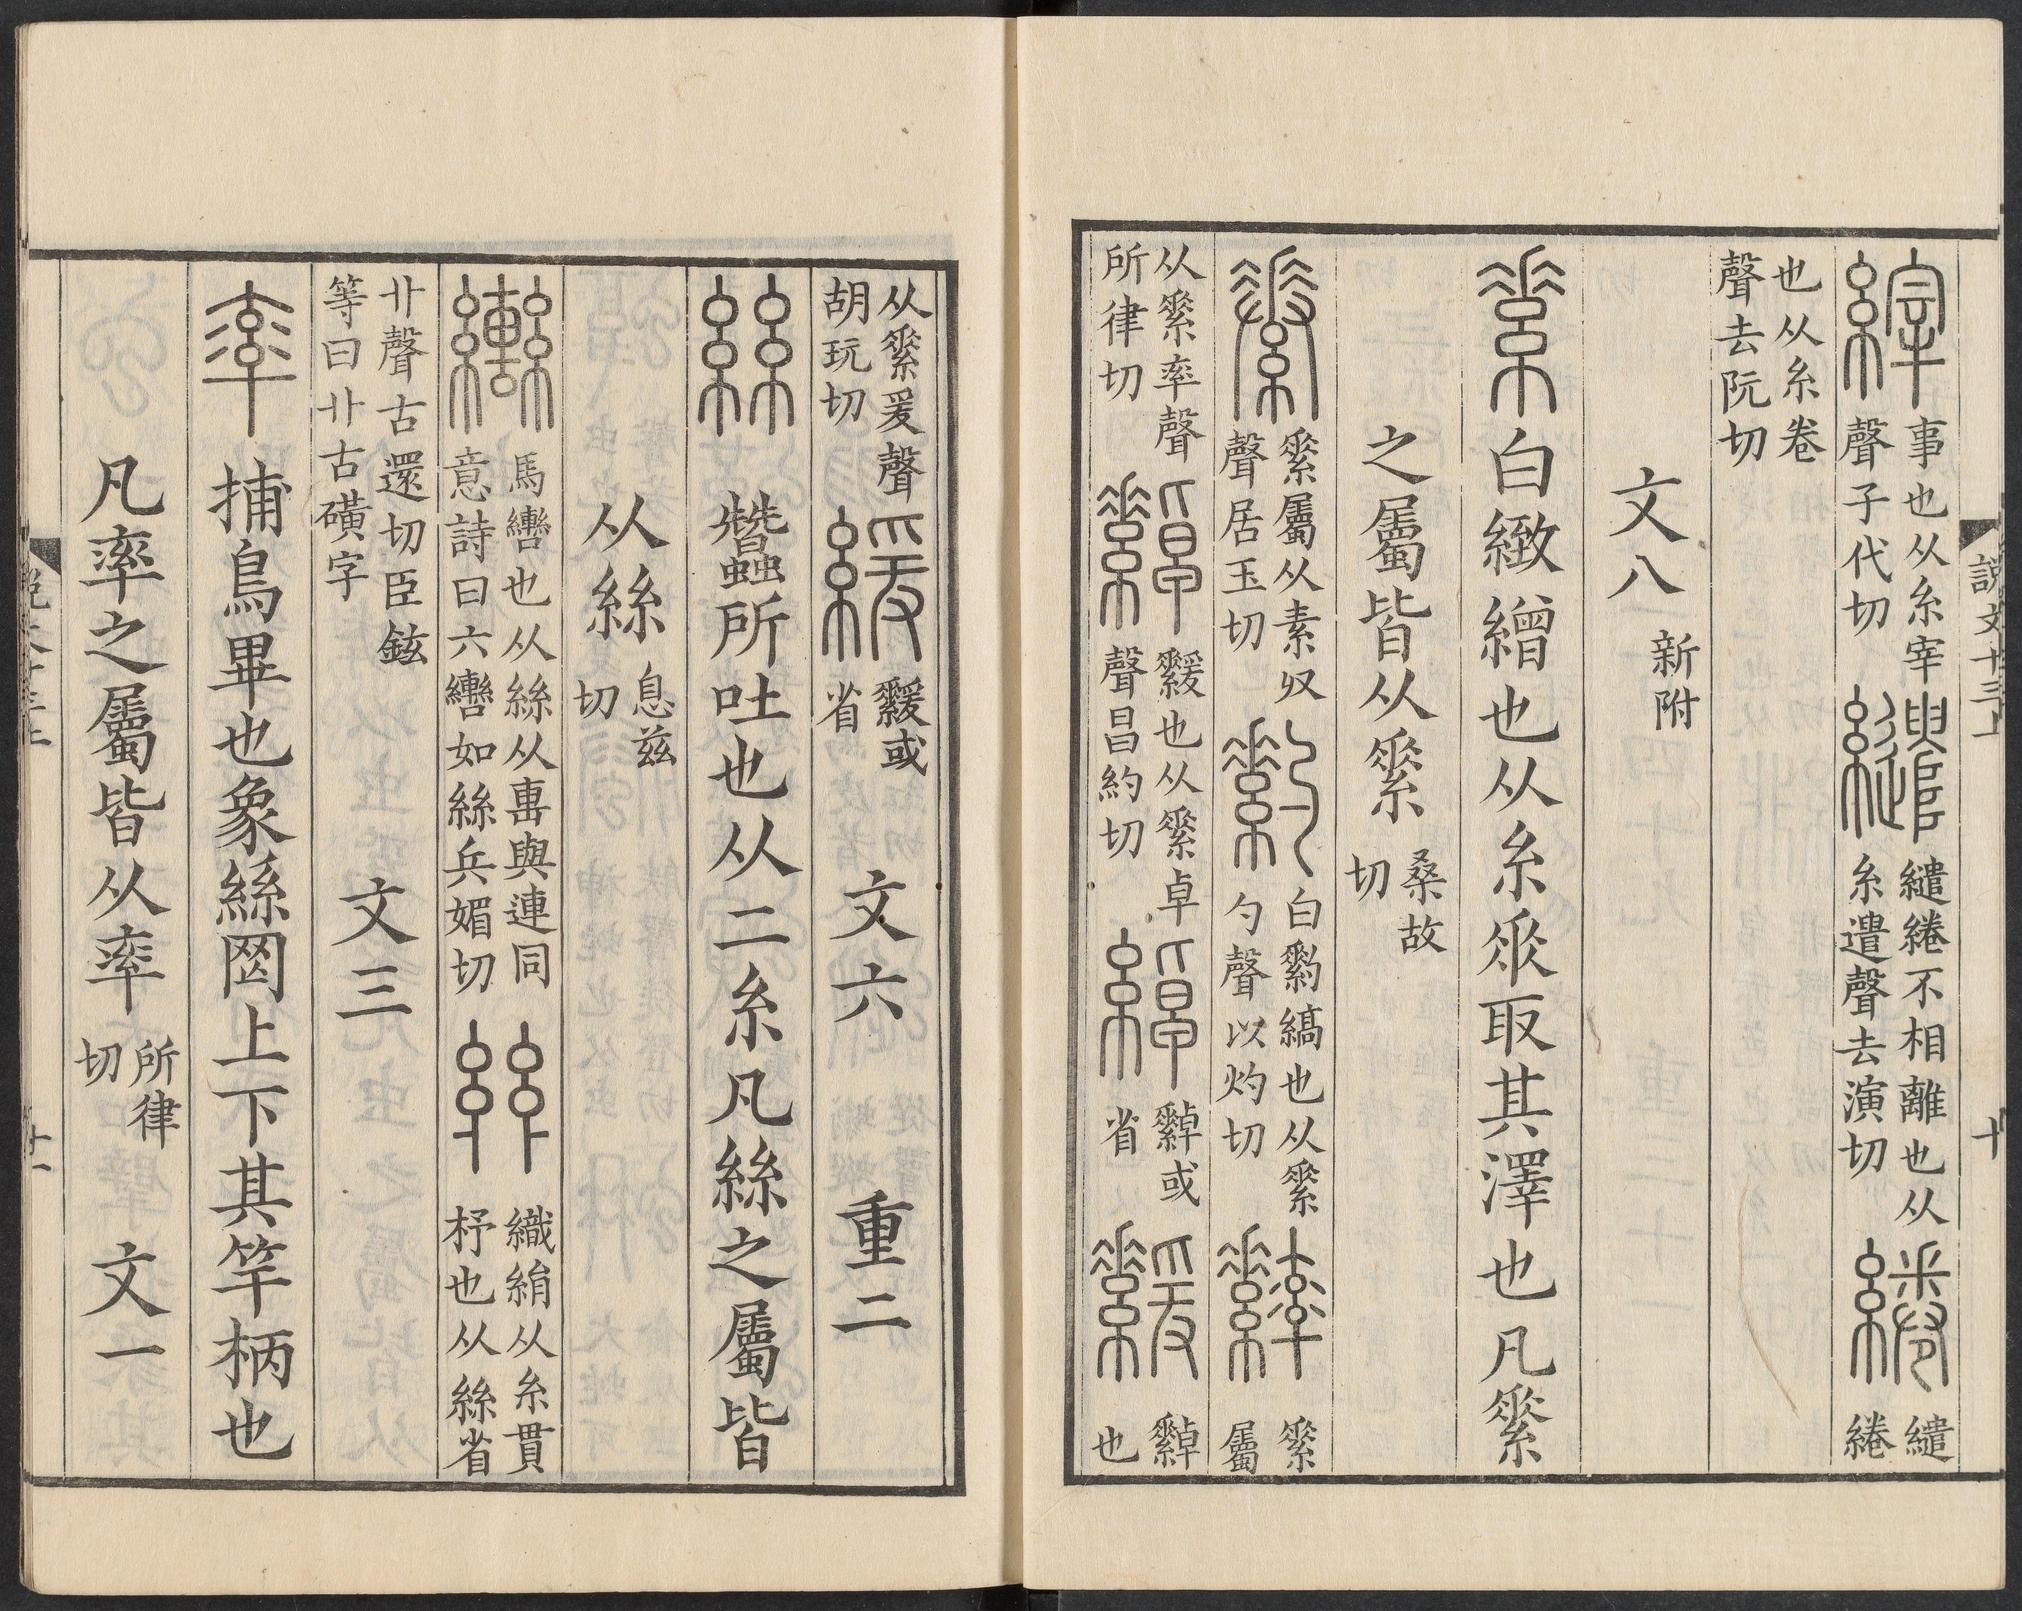 說文十三上 十
縡 事也从糸宰聲子代切 繾 繾綣不相離也从糸遣聲去演切 綣 繾綣
也从糸卷聲去阮切
文八 新附
素 白緻繒也从糸𠂹取其澤也凡素
之屬皆从素 桑故切
素屬从素収聲居玉切 䋤 白䋤縞也从素勺聲以灼切 素屬
从素率聲所律切 繛 也从素卓聲昌約切 綽 繛或省 繛也
从素爰聲胡玩切 緩 或省 文六 重二
絲 蠶所吐也从二糸凡絲之屬皆
从絲 息茲切
轡 馬轡也从絲从軎與連同意詩曰六轡如絲兵媚切 𢇇 織絹从糸貫杼也从絲省
卝聲古還切臣鉉等曰卝古磺字 文三
率 捕鳥畢也象絲罔上下其竿柄也
凡率之屬皆从率 所律切 文一
說文十三上 十一